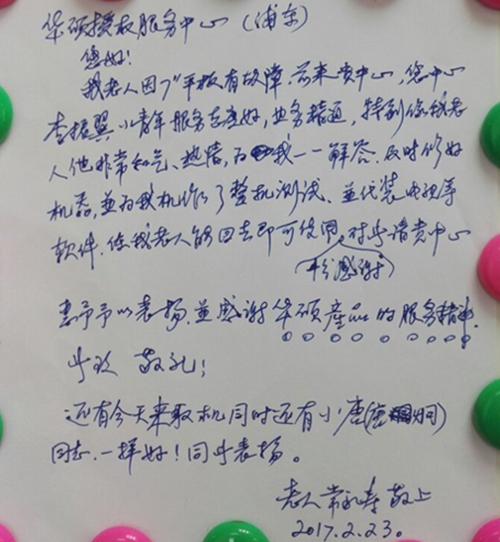 华硕授权服务中心（浦东）
您好！
我老人因7"平板有故障，前来贵中心，您中心
李振翼小青年服务态度好，业务精通，特别你我老
人他非常和气、热情，为我一一解答，及时修好
机器，並为我机作了整机测试，並代装电视等
软件，你我老人能回去即可使用，对此请贵中心
十分感谢
惠予予以表扬，並感谢华硕產品的服务精神。
此致 敬礼！
还有今天来取机同时还有小唐（唐炯）
同志，一样好！同此表扬。
老人 常 寿 敬上
2017.2.23。